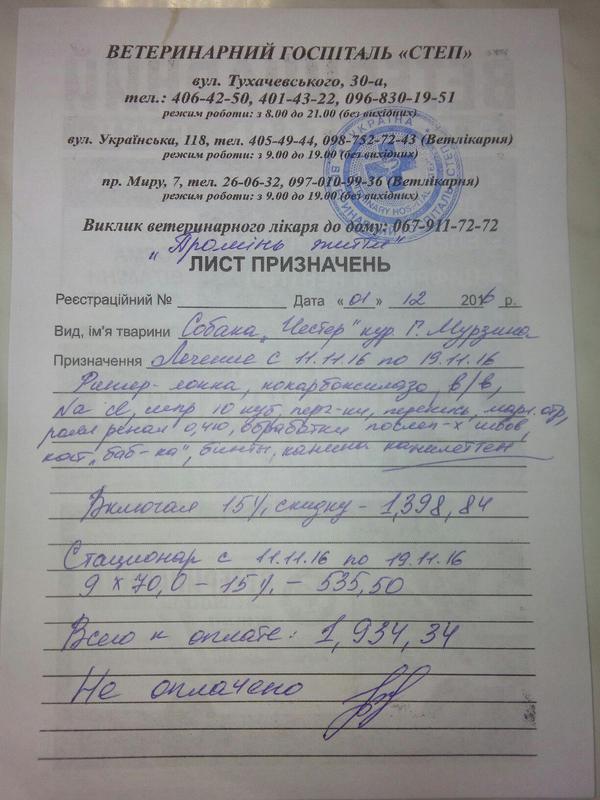 ВЕТЕРИНАРНИЙ ГОСПІТАЛЬ «СТЕП»
вул. Тухачевського, 30-а,
тел.: 406-42-50, 401-43-22, 096-830-19-51
режим роботи: з 8.00 до 21.00 (без вихідних)
вул. Українська, 118, тел. 405-49-44, 098-752-72-43 (Ветлікарня)
режим роботи: з 9.00 до 19.00 (без вихідних)
пр. Миру, 7, тел. 26-06-32, 097-010-99-36 (Ветлікарня)
режим роботи: з 9.00 до 19.00 (без вихідних)
Виклик ветеринарного лікаря до дому: 067-911-72-72
"Промінь життя"
ЛИСТ ПРИЗНАЧЕНЬ
Реєстраційний № Дата «01» 12 2016 р.
Вид, ім'я тварини Собака „Честер" кур. Г. Мурзина
Призначення Лечение с 11.11.16 по 19.11.16
Рингер-локка, кокарбоксилаза, в/в,
Na cl, шпр 10 куб, пер-ки, перекись,
0,410, обработки послеоп-х швов,
бинты,
Включая 15% скидку - 1,398,84
Стационар с 11.11.16 по 19.11.16
9 х 70,0 - 15% - 535,50
Всего к оплате: 1,934,34
Не оплачено